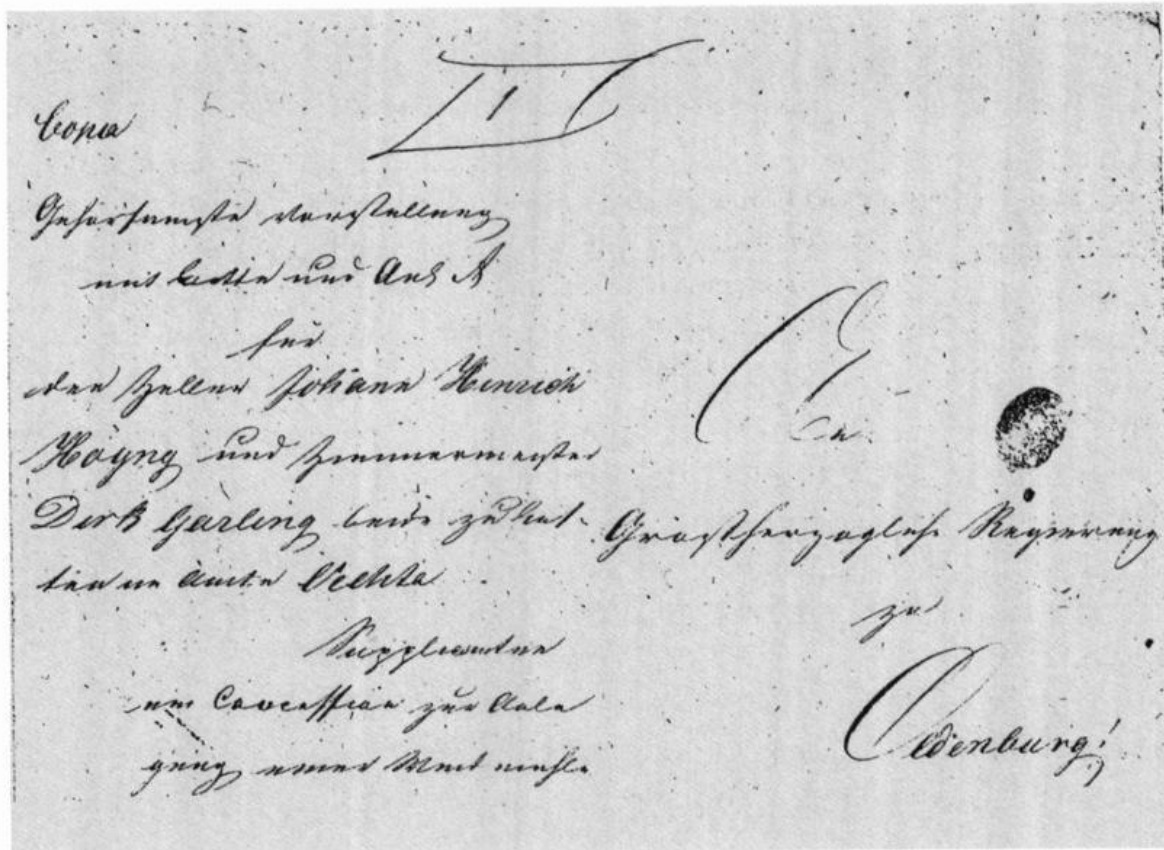 Copia
Gehorsamste Vorstellung
mit Bitte und Anl A
für
den Zeller Johann Hinrich
Höyng und Zimmermeister
Dirk Gärling beide zu
im Amte Vechta
Supplicanten
um Concession zur Anle
gung einer Wind mühle
Großherzogliche Regierung
zu
Oldenburg!